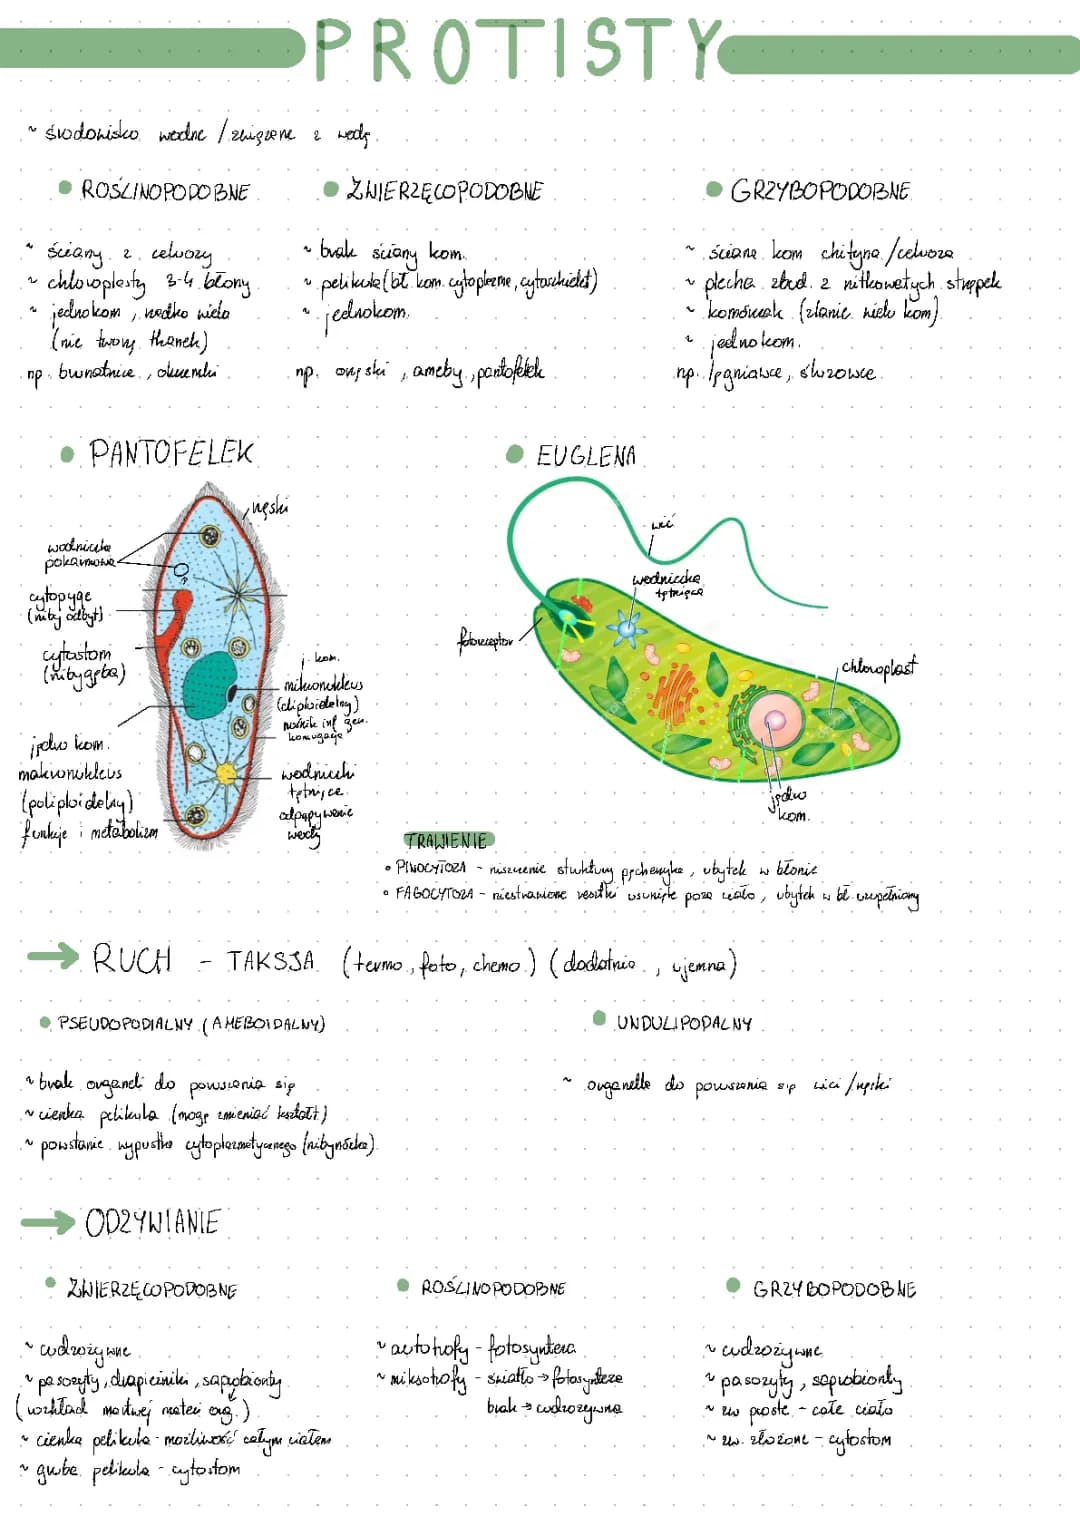 PROTISTY
~ środowisko wodne / związane z wodą
• ROŚLINOPODOBNE
~ ściany z celuozy
~ chloroplasty 3-4 błony
~ jednokom, rzadko wielo
(nie tworzą tkanek)
np. brunatnice, okrzemki
• ZWIERZĘCOPODOBNE
~ brak ściany kom.
~ pelikula (bł. kom. cytoplazma, cytoszkielet)
~ jednokom.
np. orzęski, ameby, pantofelek
• GRZYBOPODOBNE
~ ściana kom chityna/celuoza
~ plecha zbud. z nitkowatych strzępek
~ komórczak (zlanie wielu kom)
~ jednokom.
np. lęgniowce, śluzowce
• PANTOFELEK
rzęski
wodniczka
pokarmowa
cytopyge
(niby odbyt)
cytostom
(niby gęba)
jądro kom.
makronukleus
(poliploidalny)
funkcje i metabolizm
j. kom.
mikronukleus
(diploidalny)
nośnik inf gen.
koniugacja
wodniczki
tętniące
odpompywanie
wody
• EUGLENA
wić
wodniczka
tętniąca
fotoreceptor
chloroplast
jądro
kom.
TRAWIENIE
• PINOCYTOZA - niszczenie struktury pęcherzyka, ubytek w błonie
• FAGOCYTOZA - niestrawione resztki usunięte poza ciało, ubytek w bł. uzupełniony
→ RUCH - TAKSJA (termo., foto, chemo.) (dodatnia, ujemna)
• PSEUDOPODIALNY (AMEBOIDALNY)
~ brak organelli do poruszania się
~ cienka pelikula (mogą zmieniać kształt)
~ powstanie wypustka cytoplazmatycznego (nibynóżka)
• UNDULIPODALNY
~ organelle do poruszania się wici/rzęski
→ ODŻYWIANIE
• ZWIERZĘCOPODOBNE
~ cudzożywne
~ pasożyty, drapieżniki, saprobionty
(rozkład martwej materi org.)
~ cienka pelikula - możliwość całym ciałem
~ gruba pelikula - cytostom
• ROŚLINOPODOBNE
~ autotrofy - fotosynteza
~ miksotrofy - światło → fotosynteza
brak → cudzożywna
• GRZYBOPODOBNE
~ cudzożywne
~ pasożyty, saprobionty
~ zw proste - całe ciało
~ zw. złożone - cytostom